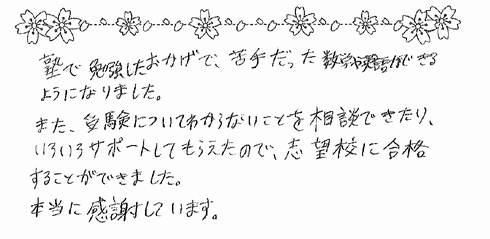 塾で勉強したおかげで、苦手だった数学や英語ができる
ようになりました。
また、受験についてわからないことを相談できたり、
いろいろサポートしてもらえたので、志望校に合格
することができました。
本当に感謝しています。